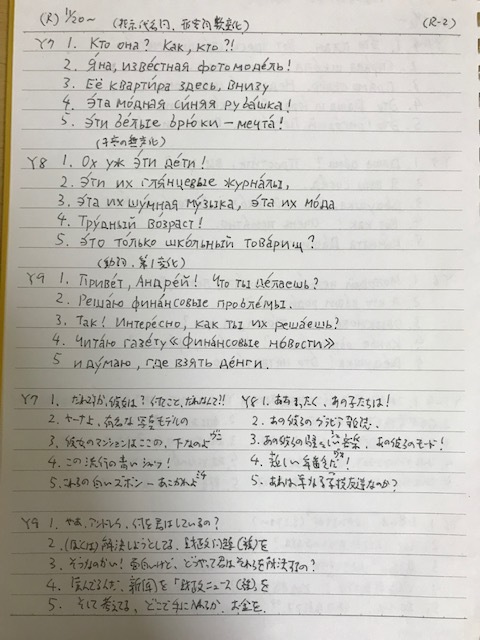 (R) 11/20~ (指示代名詞、形容詞変化) (R-2)
У7 1. Кто она? Как, кто?!
2. Я́на, изве́стная фотомоде́ль!
3. Её кварти́ра здесь, внизу́
4. Э́та мо́дная си́няя руба́шка!
5. Э́ти бе́лые брю́ки — мечта́!
У8 1. Ох уж э́ти де́ти!
2. Э́ти их гля́нцевые журна́лы,
3. Э́та их шу́мная му́зыка, э́та их мо́да
4. Тру́дный во́зраст!
5. Э́то то́лько шко́льный това́рищ?
(動詞、第1変化)
У9 1. Приве́т, Андре́й! Что ты де́лаешь?
2. Реша́ю фина́нсовые пробле́мы.
3. Так! Интере́сно, как ты их реша́ешь?
4. Чита́ю газе́ту «Фина́нсовые но́вости»
5 и ду́маю, где взять де́нги.
У7 1. だれですか、彼女は? くだって、だれなんて!!
2. ヤーナよ、有名な写真モデルの
3. 彼女のマンションはここの、下なのよ
4. この流行の青いシャツ!
5. これらの白いズボン—あこがれよ
У8 1. ああまったく、あの子たちは!
2. あの彼らのグラビア雑誌、
3. あの彼らの騒々しい音楽、あの彼らのモード!
4. 難しい年齢だ!
5. あれは単なる学校友達なのか?
У9 1. やあ、アンドレイ、何を君はしているの?
2. (ぼくは)解決しようとしてる、財政問題(複)を
3. そうなのかい! 面白いけど、どうやって君はそれらを解決するの?
4. 読んでるんだ、新聞を「財政ニュース(複)」を
5. そして考えてる、どこで手に入るか、お金を.